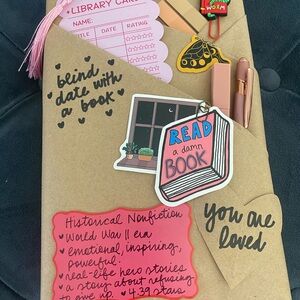 • LIBRARY CARD
NAME:
TITLE DATE RATING
WORM
blind
date with
a book
READ
a damn
BOOK
Historical Nonfiction
♥ World War II era
♥ emotional, inspiring,
powerful.
♥ real-life hero stories
♥ a story about refusing
to give up ♥ 4.39 stars
You are
loved